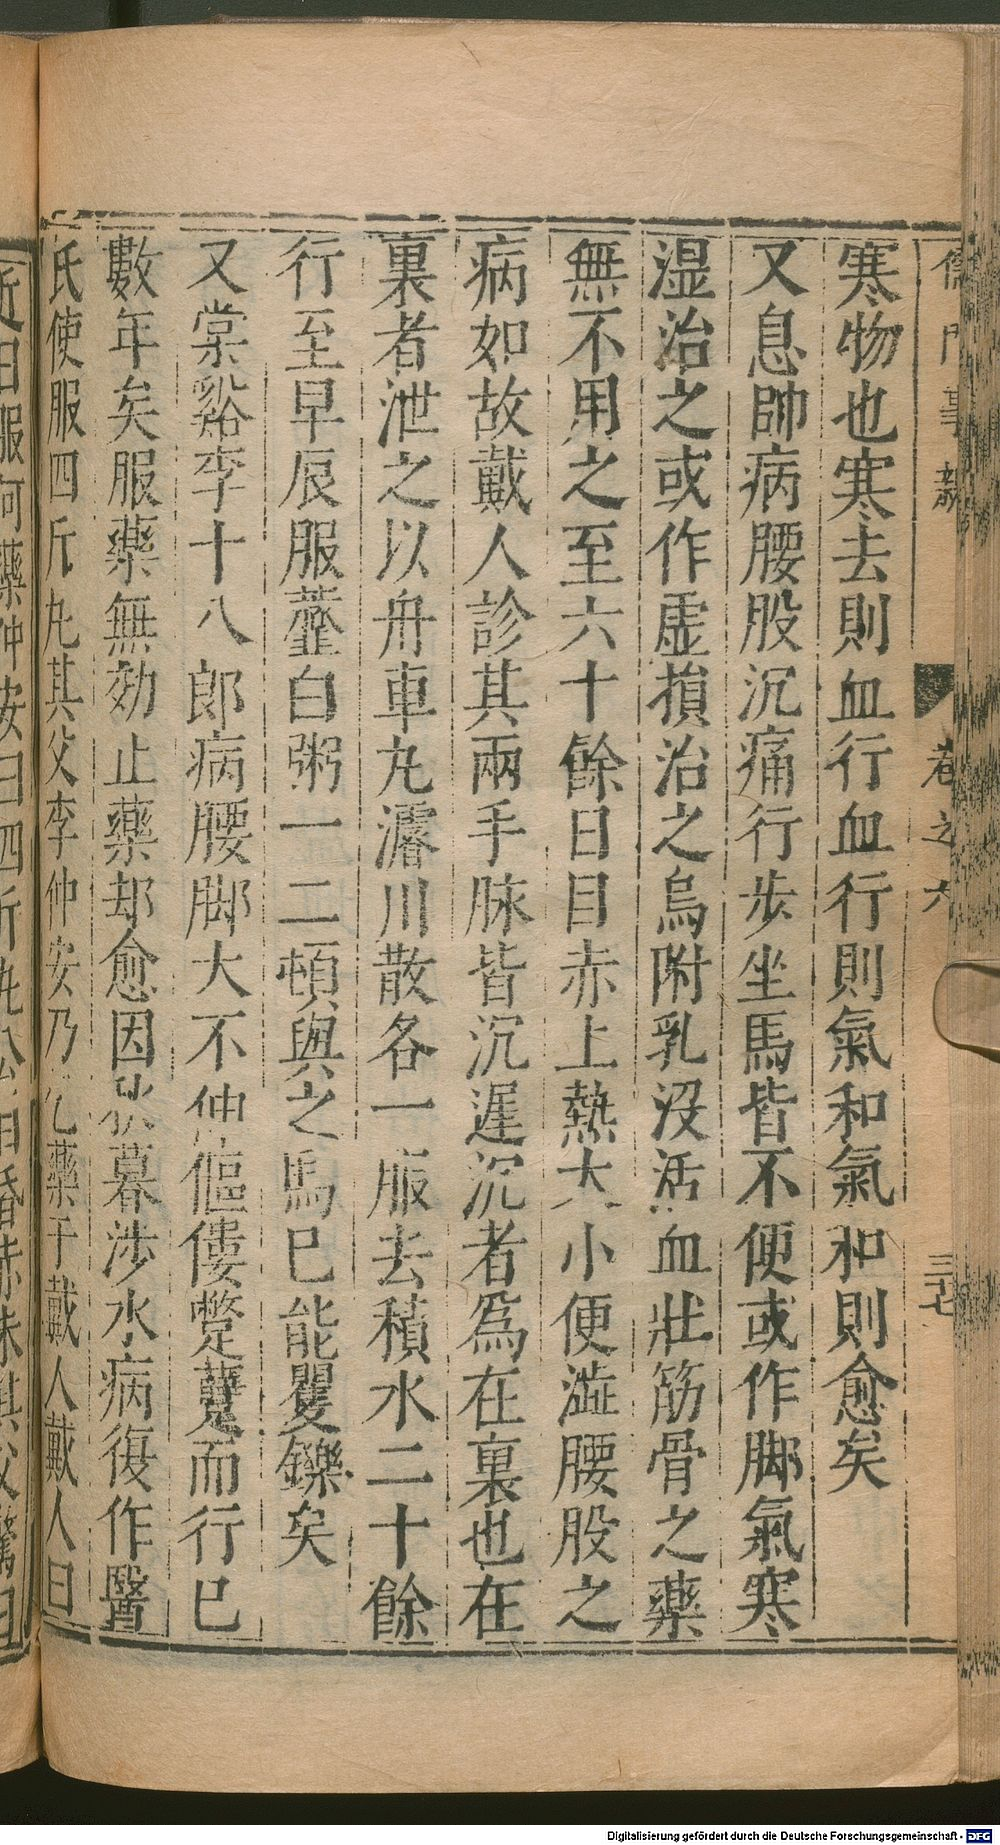 儒門事親 卷之六 三十七
寒物也寒去則血行血行則氣和氣和則愈矣
又息帥病腰股沉痛行步坐馬皆不便或作脚氣寒
湿治之或作虚損治之烏附乳没活血壯筋骨之藥
無不用之至六十餘日目赤上熱大小便澁腰股之
病如故戴人診其兩手脉皆沉遲沉者爲在裏也在
裏者泄之以舟車丸濬川散各一服去積水二十餘
行至早辰服虀白粥一二頓與之馬巳能矍鑠矣
又棠谿李十八郎病腰脚大不伸傴僂蹩躠而行巳
數年矣服藥無効止藥却愈因秋暮涉水病復作醫
氏使服四斤丸其父李仲安乃乞藥于戴人戴人曰
近日服何藥仲安曰四斤丸曰目昏赤未其父驚曰
Digitalisierung gefördert durch die Deutsche Forschungsgemeinschaft - DFG